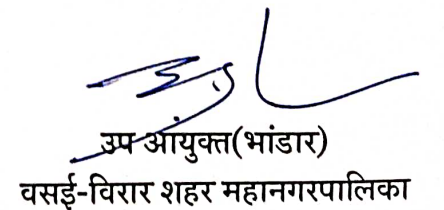 उप आयुक्त(भांडार)
वसई-विरार शहर महानगरपालिका